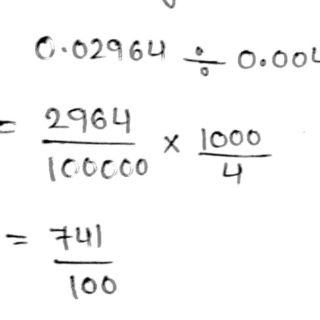 0.02964 ÷ 0.004
= 2964/100000 × 1000/4
= 741/100